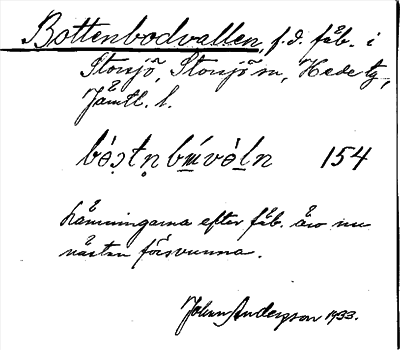 Bottenbodvallen, f.d. fäb. i
Storsjö, Storsjö sn, Hede tg,
Jämtl. l.
154
Lämningarna efter fäb. äro nu
nästan försvunna.
Johan Anderson 1933.